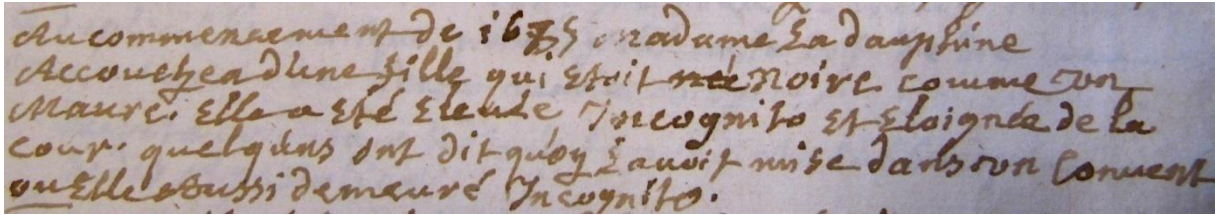 Au commencement de 1675 madame La dauphine
Accoucha d'une fille qui Etoit née Noire comme un
Maure. Elle a Eté Elevée Incognito Et Eloignée de la
cour. quelqúns ont dit qúoy Lavoit mise dans un Convent
ou Elle aussi demeuré Incognito.